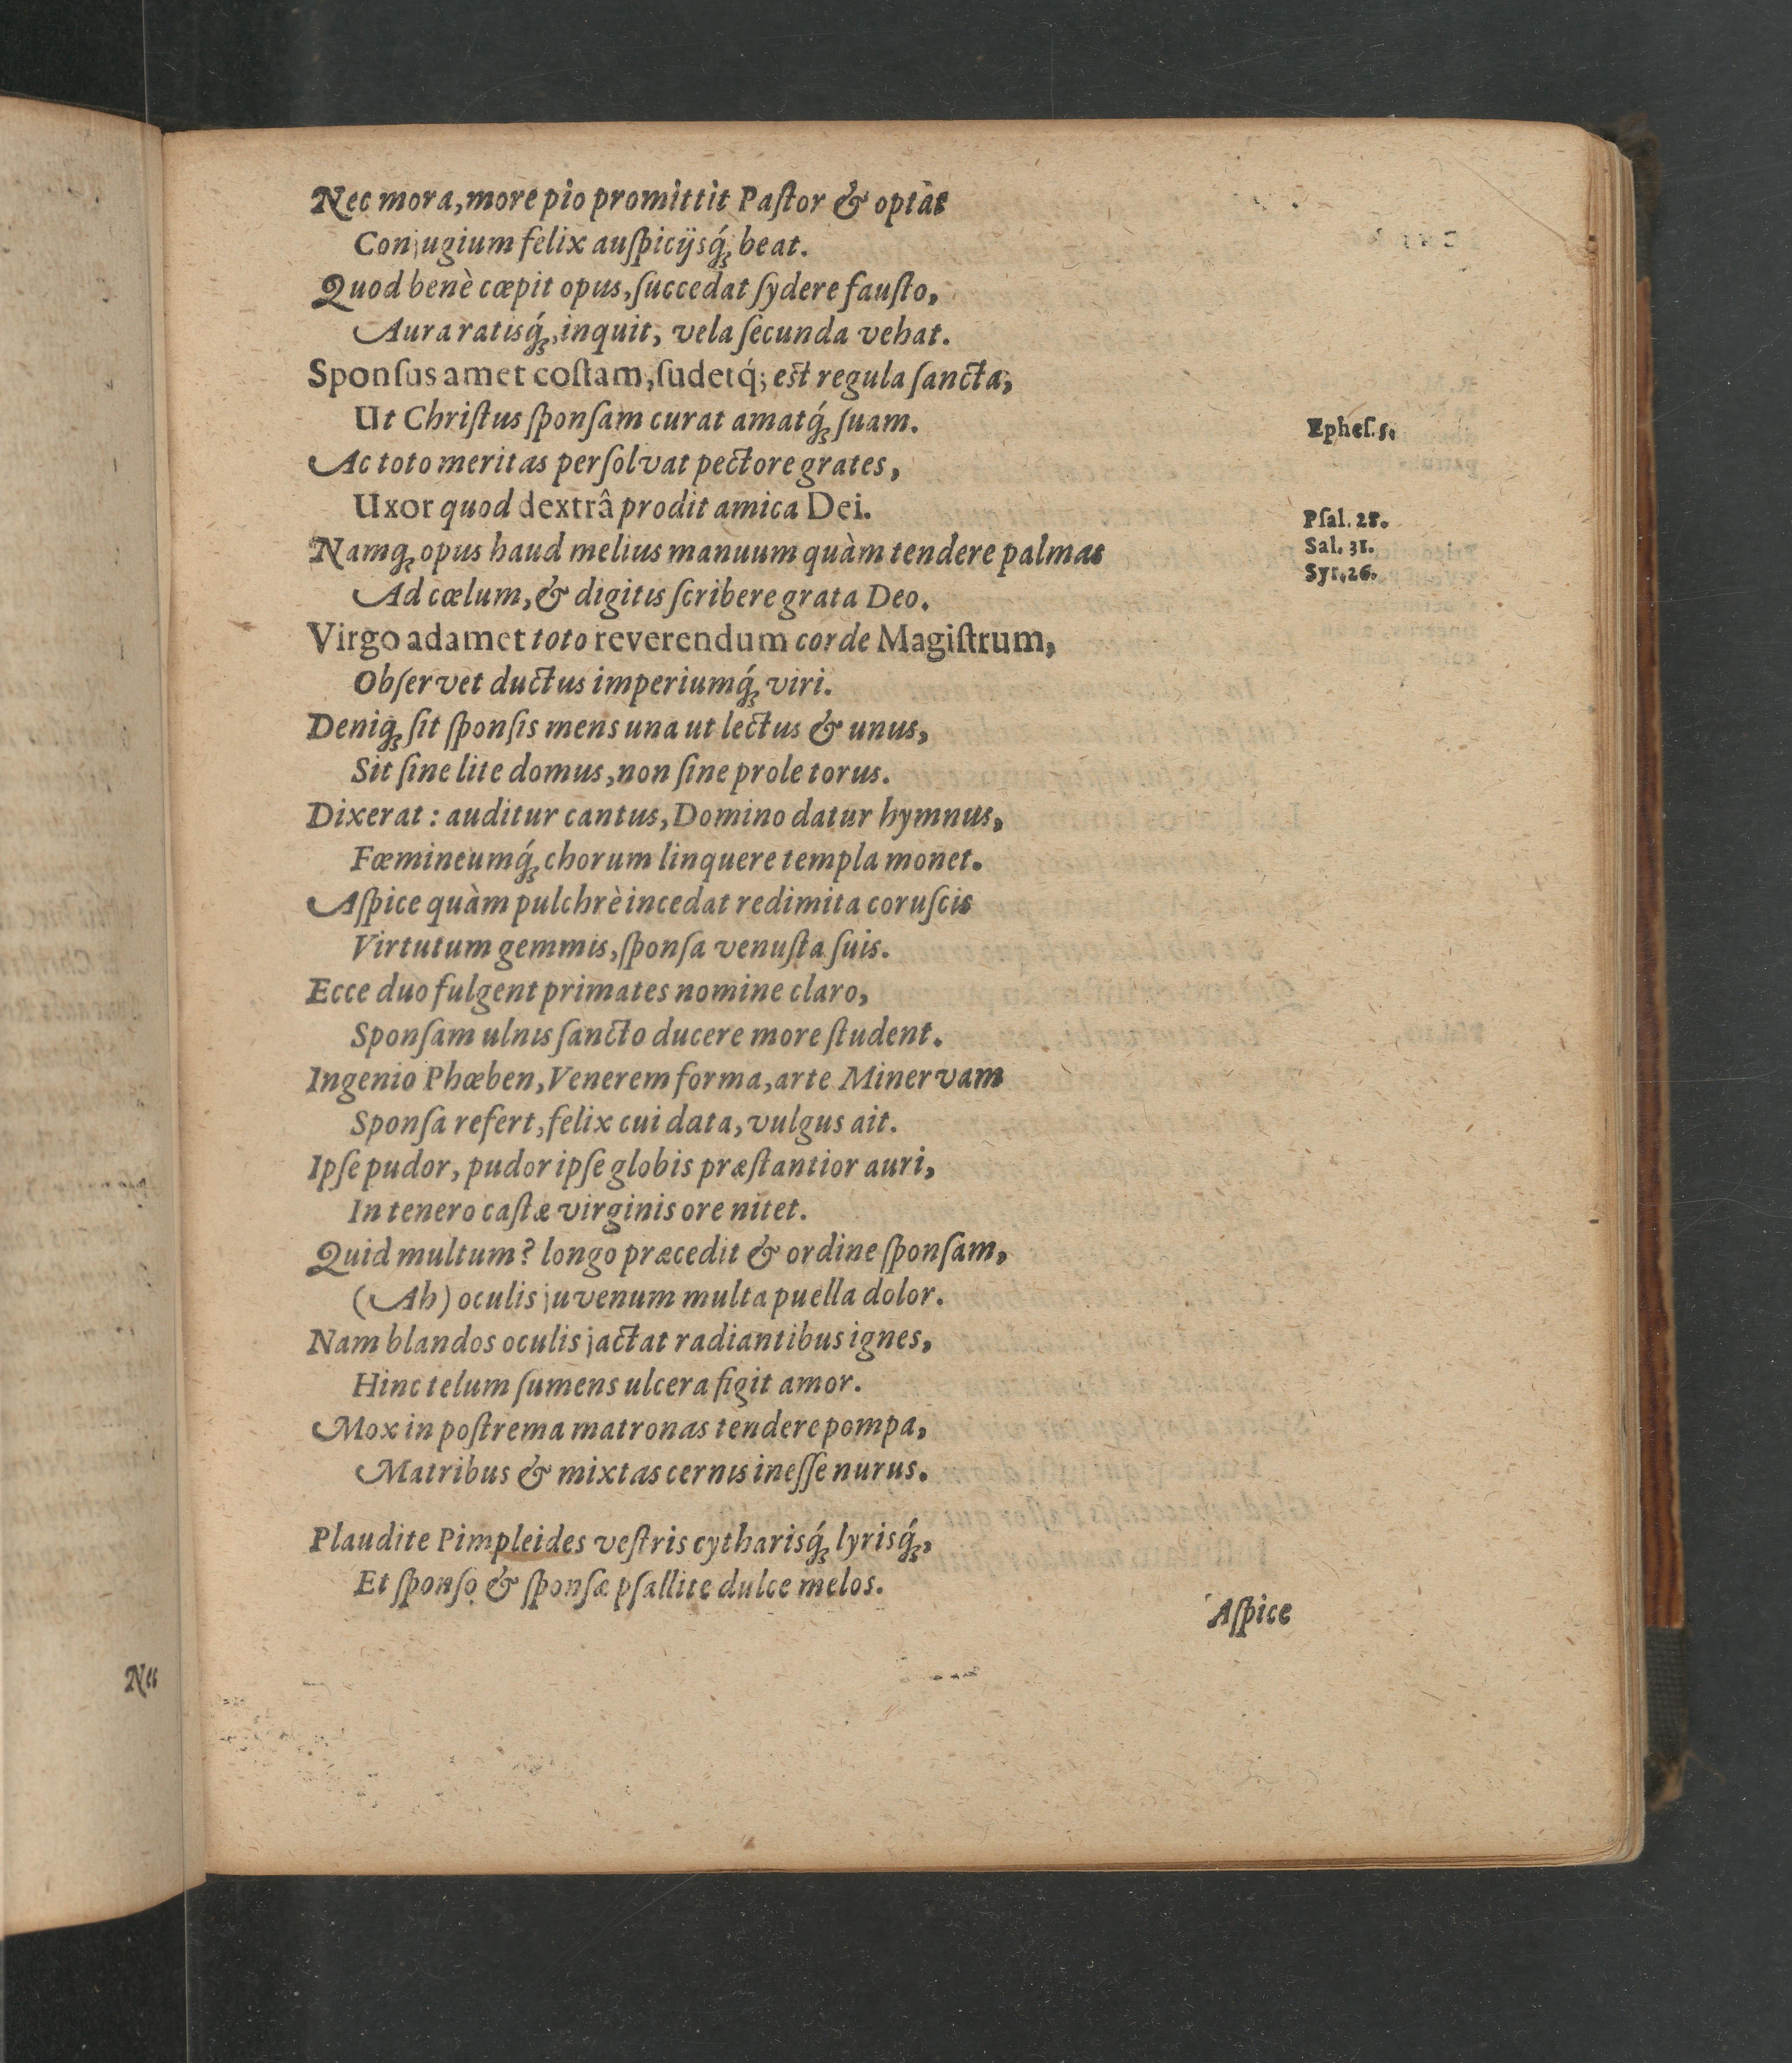 Nec mora, more pio promittit Paſtor & optat
Conjugium felix auſpicijsq́; beat.
Quod benè cœpit opus, ſuccedat ſydere fauſto,
Aura ratisq́;, inquit, vela ſecunda vehat.
Sponſus amet coſtam, ſudetq́; est regula ſancta,
Ut Chriſtus ſponſam curat amatq́; ſuam.
Epheſ. 5.
Ac toto meritas perſolvat pectore grates,
Uxor quod dextrâ prodit amica Dei.
Pſal. 28.
Namq; opus haud melius manuum quàm tendere palmas
Sal. 31.
Syr. 26.
Ad cœlum, & digitis ſcribere grata Deo.
Virgo adamet toto reverendum corde Magiſtrum,
Obſervet ductus imperiumq́; viri.
Deniq́; ſit ſponſis mens una ut lectus & unus,
Sit ſine lite domus, non ſine prole torus.
Dixerat: auditur cantus, Domino datur hymnus,
Fœmineumq́; chorum linquere templa monet.
Aſpice quàm pulchrè incedat redimita coruſcis
Virtutum gemmis, ſponſa venuſta ſuis.
Ecce duo fulgent primates nomine claro,
Sponſam ulnis ſancto ducere more ſtudent.
Ingenio Phœben, Venerem forma, arte Minervam
Sponſa refert, felix cui data, vulgus ait.
Ipſe pudor, pudor ipſe globis præſtantior auri,
In tenero caſtæ virginis ore nitet.
Quid multum? longo præcedit & ordine ſponſam,
(Ah) oculis juvenum multa puella dolor.
Nam blandos oculis jactat radiantibus ignes,
Hinc telum ſumens ulcera figit amor.
Mox in poſtrema matronas tendere pompa,
Matribus & mixtas cernis ineſſe nurus.
Plaudite Pimpleides veſtris cytharisq́; lyrisq́;,
Et ſponſo & ſponſæ pſallite dulce melos.
Aſpice